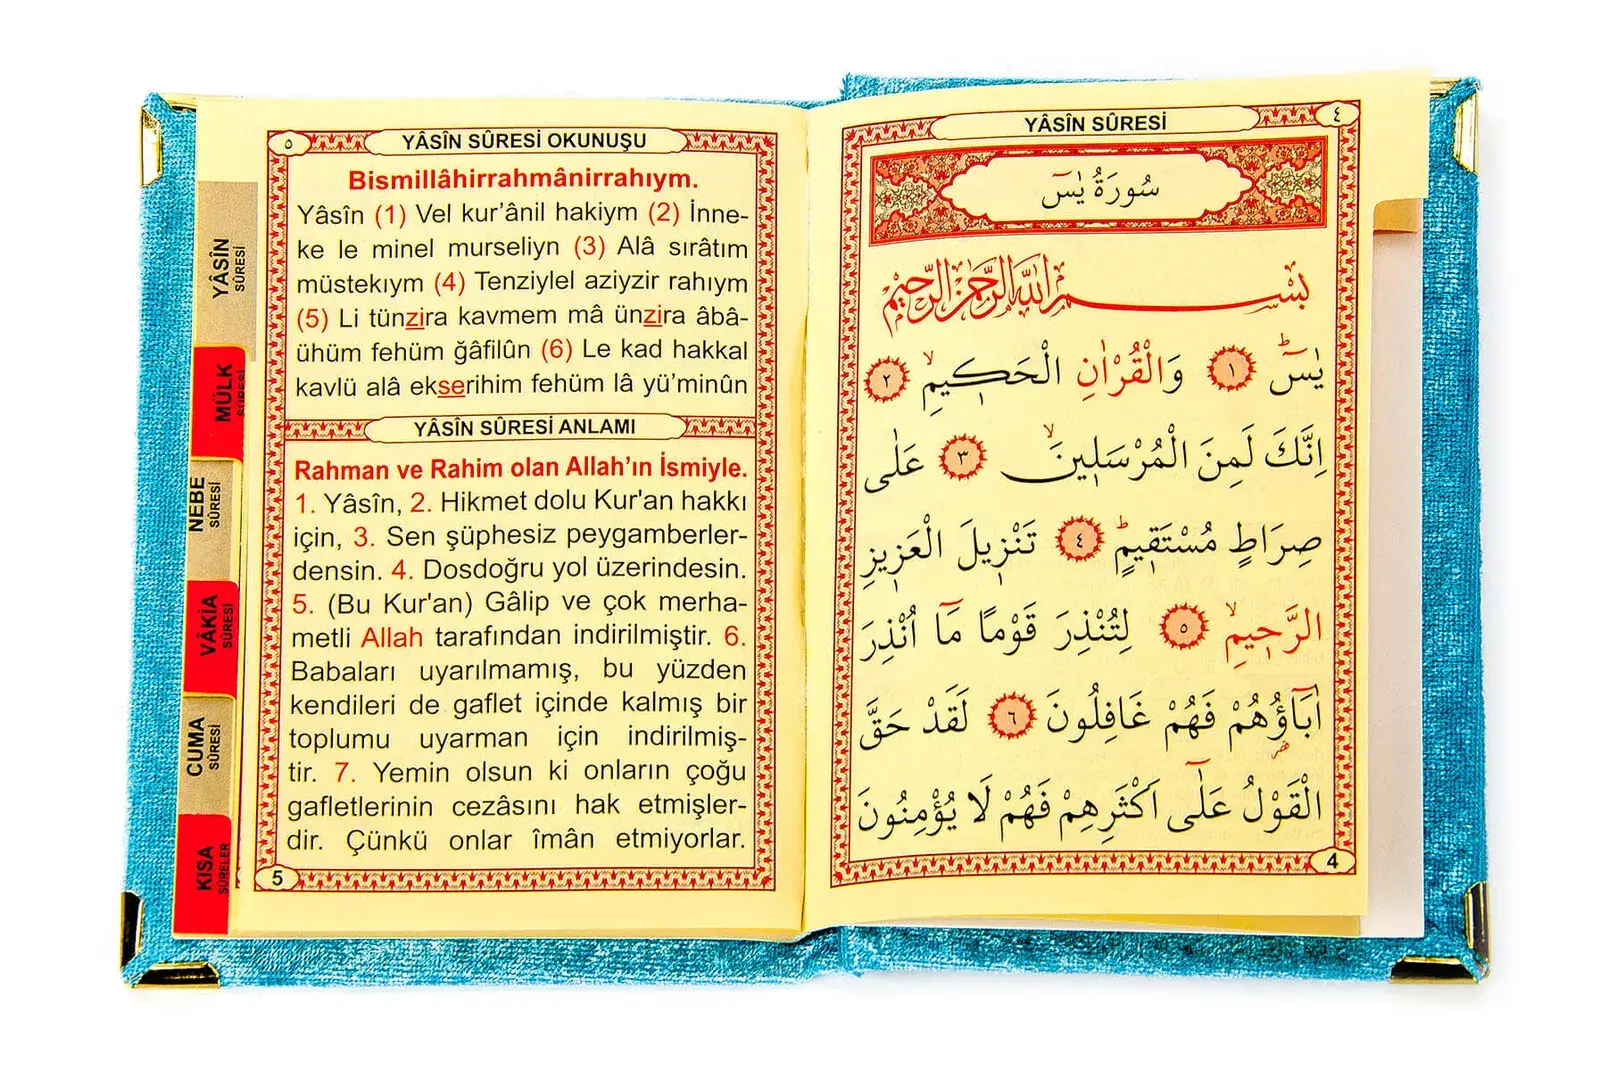 YÂSÎN SÛRESİ
٤
سُورَةُ يٰسٓ
بِسْمِ اللّٰهِ الرَّحْمٰنِ الرَّحٖيمِ
يٰسٓۜ ﴿١﴾ وَالْقُرْاٰنِ الْحَكٖيمِۙ ﴿٢﴾
اِنَّكَ لَمِنَ الْمُرْسَلٖينَۙ ﴿٣﴾ عَلٰى
صِرَاطٍ مُسْتَقٖيمٍۜ ﴿٤﴾ تَنْزٖيلَ الْعَزٖيزِ
الرَّحٖيمِۙ ﴿٥﴾ لِتُنْذِرَ قَوْمًا مَٓا اُنْذِرَ
اٰبَٓاؤُ۬هُمْ فَهُمْ غَافِلُونَ ﴿٦﴾ لَقَدْ حَقَّ
الْقَوْلُ عَلٰٓى اَكْثَرِهِمْ فَهُمْ لَا يُؤْمِنُونَ
4
٥
YÂSÎN SÛRESİ OKUNUŞU
Bismillâhirrahmânirrahıym.
Yâsîn (1) Vel kur’ânil hakiym (2) İnne-
ke le minel murseliyn (3) Alâ sırâtım
müstekıym (4) Tenziylel aziyzir rahıym
(5) Li tünzira kavmem mâ ünzira âbâ-
ühüm fehüm ğâfilûn (6) Le kad hakkal
kavlü alâ ekserihim fehüm lâ yü’minûn
YÂSÎN SÛRESİ ANLAMI
Rahman ve Rahim olan Allah’ın İsmiyle.
1. Yâsîn, 2. Hikmet dolu Kur'an hakkı
için, 3. Sen şüphesiz peygamberler-
densin. 4. Dosdoğru yol üzerindesin.
5. (Bu Kur'an) Gâlip ve çok merha-
metli Allah tarafından indirilmiştir. 6.
Babaları uyarılmamış, bu yüzden
kendileri de gaflet içinde kalmış bir
toplumu uyarman için indirilmiş-
tir. 7. Yemin olsun ki onların çoğu
gafletlerinin cezâsını hak etmişler-
dir. Çünkü onlar îmân etmiyorlar.
5
YÂSÎN
SÛRESİ
MÜLK
SÛRESİ
NEBE
SÛRESİ
VÂKİA
SÛRESİ
CUMA
SÛRESİ
KISA
SÛRELER